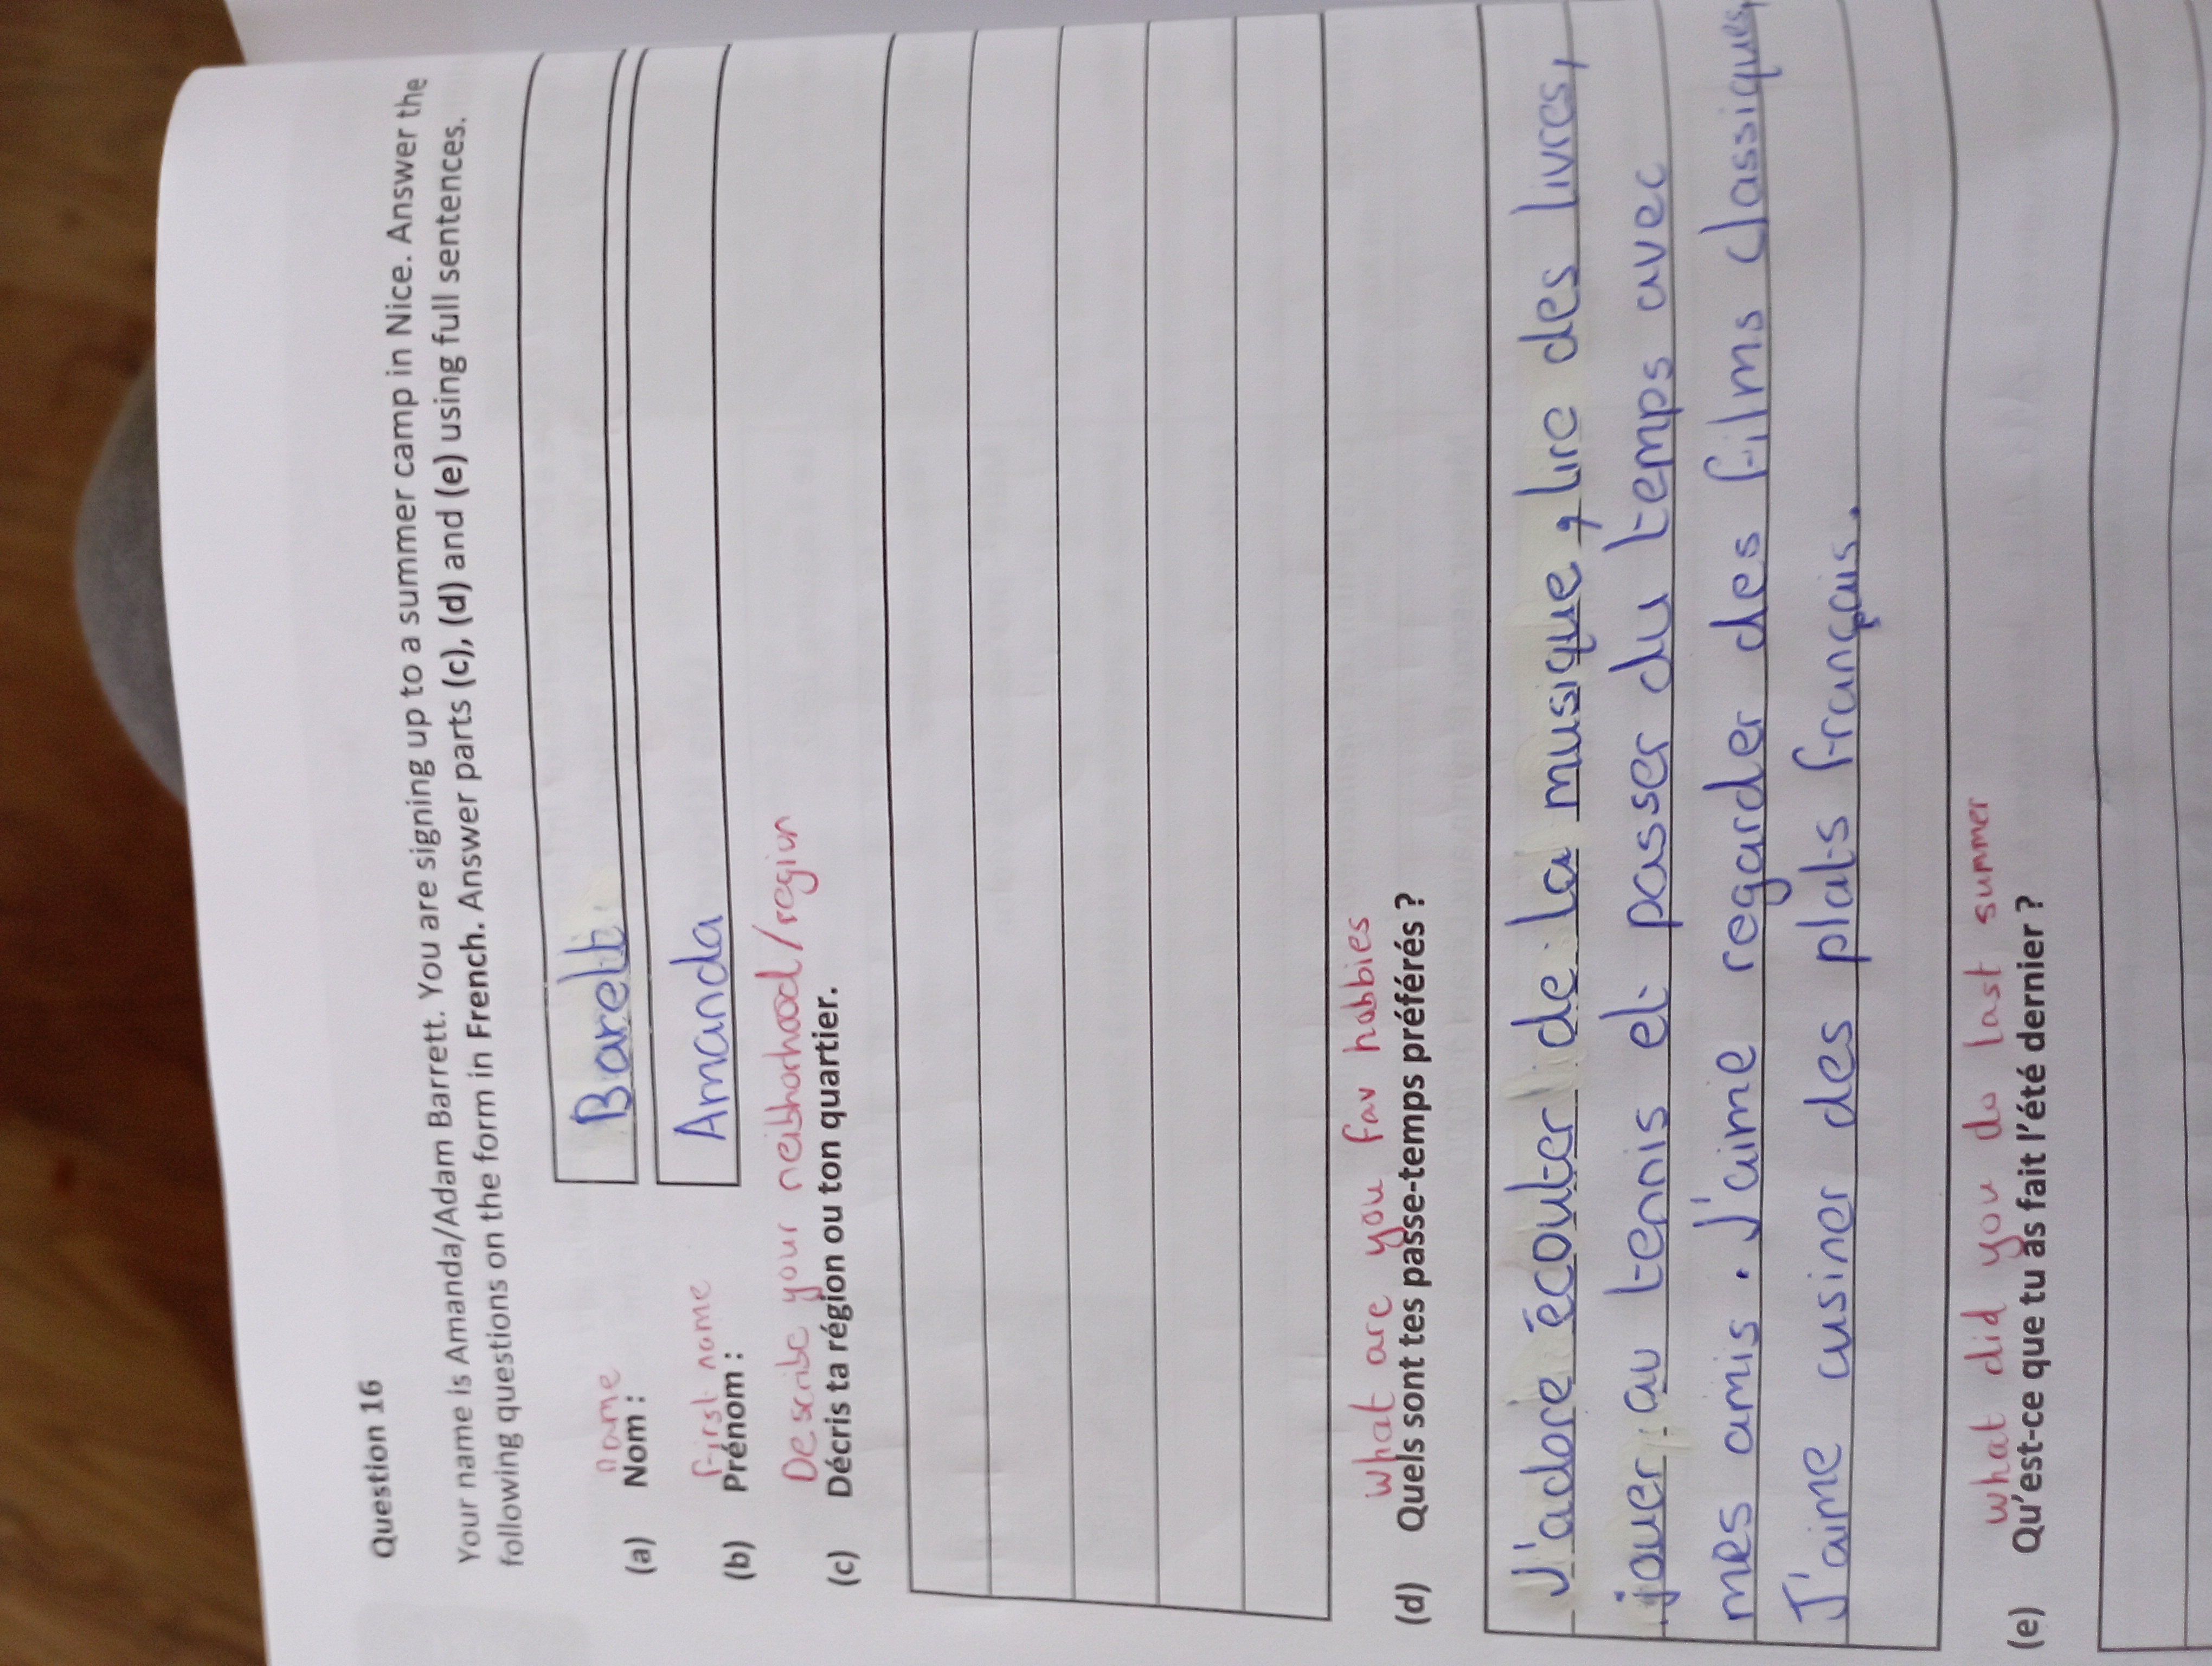 Question 16
Your name is Amanda/Adam Barrett. You are signing up to a summer camp in Nice. Answer the
following questions on the form in French. Answer parts (c), (d) and (e) using full sentences.
name
(a) Nom : Barett
first name
(b) Prénom : Amanda
Describe your neibhorhood/region
(c) Décris ta région ou ton quartier.
what are you fav hobbies
(d) Quels sont tes passe-temps préférés ?
J'adore écouter de la musique, lire des livres,
jouer au tennis et passer du temps avec
mes amis. J'aime regarder des films classiques,
J'aime cusiner des plats français.
what did you do last summer
(e) Qu'est-ce que tu as fait l'été dernier ?